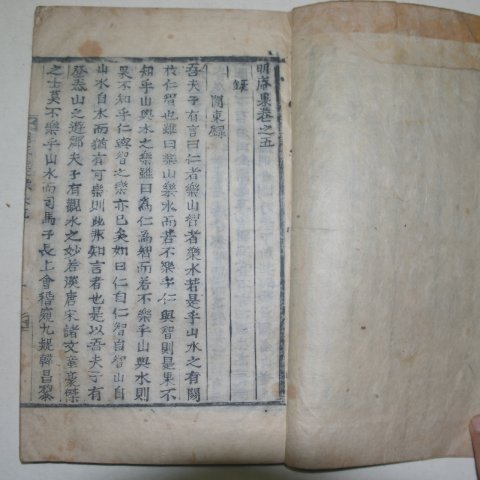 明菴集卷之五
錄
關東錄
吾夫子有言曰仁者樂山智者樂水若是乎山水之有關
於仁智也雖曰樂山樂水而若不樂乎仁與智則是果不
知乎山與水之樂雖曰爲仁爲智而若不樂乎山與水則
果不知乎仁與智之樂亦已矣如曰仁自仁智自智山自
山水自水而猶有可樂則此非知言者也是以吾夫子有
登泰山之遊鄒夫子有觀水之妙若漢唐宋諸文章豪傑
之士莫不樂乎山水而司馬子長上會稽窺九規韓昌黎